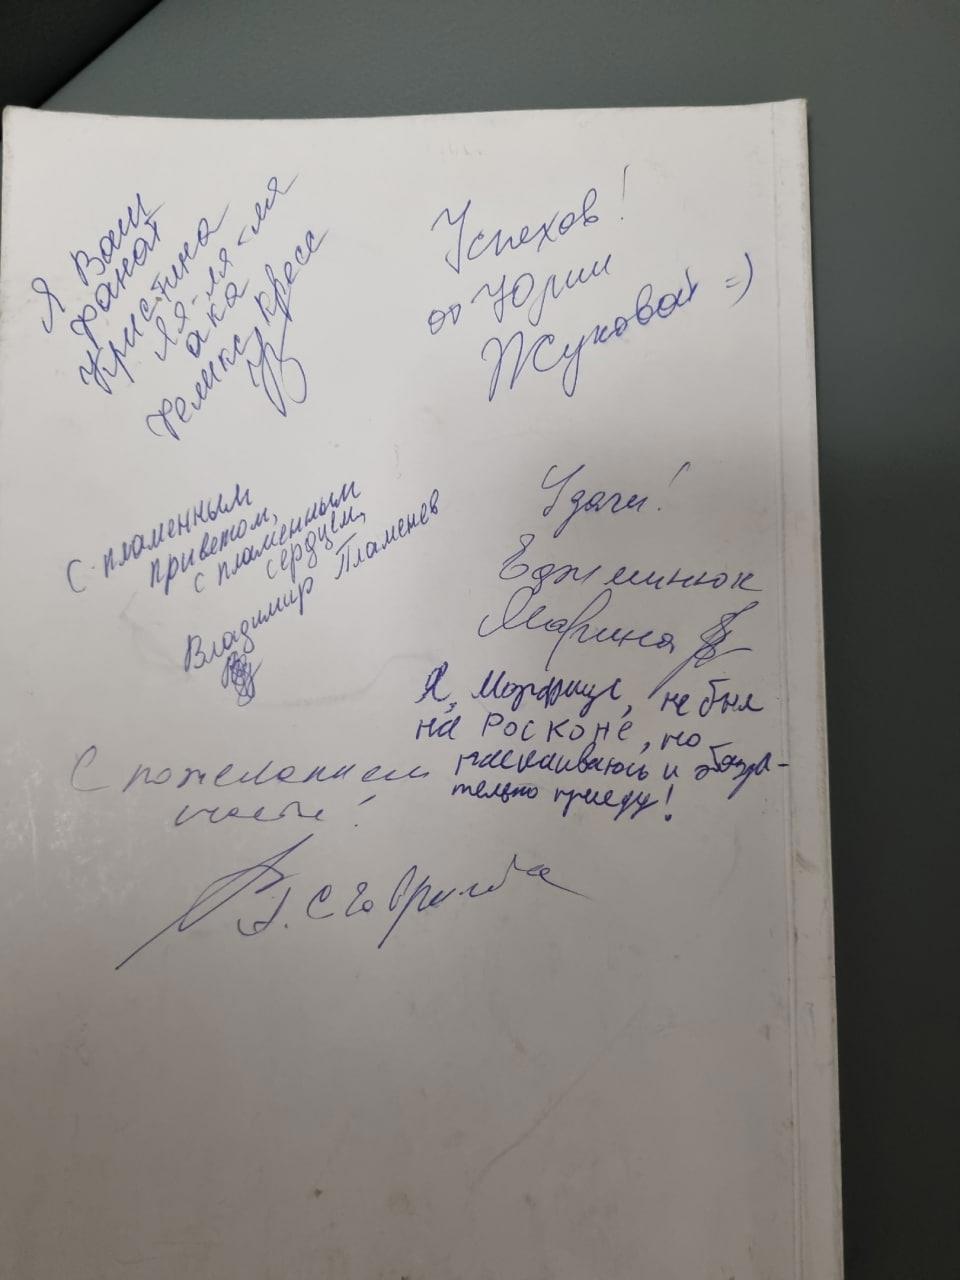 Я Ваш
фанат
Кристина
ля-ля-ля
ака
Феликс Кресс
Успехов!
от Юрии
Жуковой =)
С пламенным
приветом,
с пламенным
сердцем,
Владимир Пламенев
Удачи!
Еджминюк
Марина
Я, не был
на Росконе, но
раскаиваюсь и обяза-
тельно приеду!
С пожеланием
счастья!